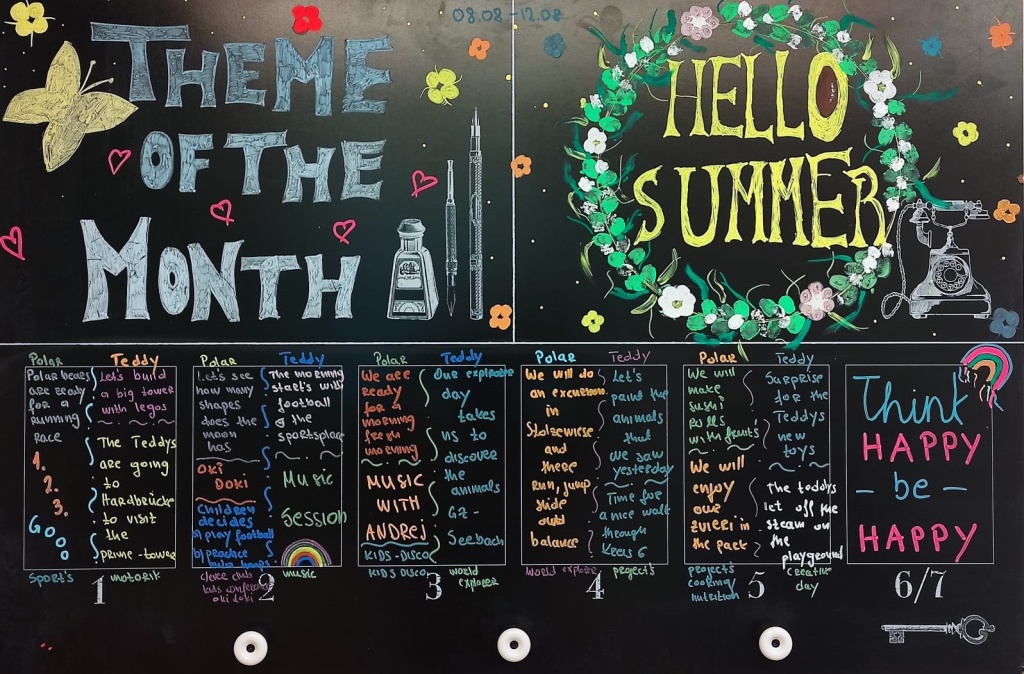 08.08 - 12.08
THEME
OF THE
MONTH
HELLO
SUMMER
Polar
Polar bears
are ready
for a
running
race
1.
2.
3.
Gooo
Sport's
Teddy
Let's build
a big tower
with legos
The Teddys
are going
to
Hardbrücke
to visit
the
prime-tower
motorik
1
Polar
Let's see
how many
shapes
does the
moon
has
Oki
Doki
Children
decides
a) play football
b) practice
hula hoops
clever club
kids conference
oki doki
Teddy
The morning
start's with
football
@ the
sportsplace
Music
Session
music
2
Polar
We are
ready
for a
morning
fresh
morning
Music
with
Andrej
KIDS-DISCO
KIDS DISCO
Teddy
Our explorate
day
takes
us to
discover
the
animals
GZ-
Seebach
world
explorer
3
Polar
We will do
an excursion
in
Stolzewiese
and
there
run, jump
slide
and
balance
world explorer
Teddy
Let's
paint the
animals
that
we saw
yesterday
Time for
a nice walk
through
Kreis 6
projects
4
Polar
We will
make
sushi
rolls
with fruits
We will
enjoy
our
zvieri in
the park
projects
cooking
nutrition
Teddy
Surprise
for the
Teddys
new
toys
The teddys
let off the
steam on
the
playground
creative
day
5
Think
HAPPY
- be -
HAPPY
6/7